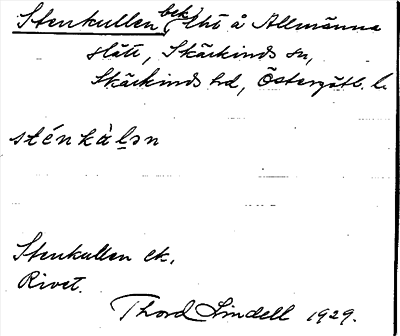 Stenkullen (btk) lht å Allmänna
slätt, Skärkinds sn,
Skärkinds hd, Östergötl. l.
sténkàlən
Stenkullen ek.
Rivet.
Thord Lindell 1929.